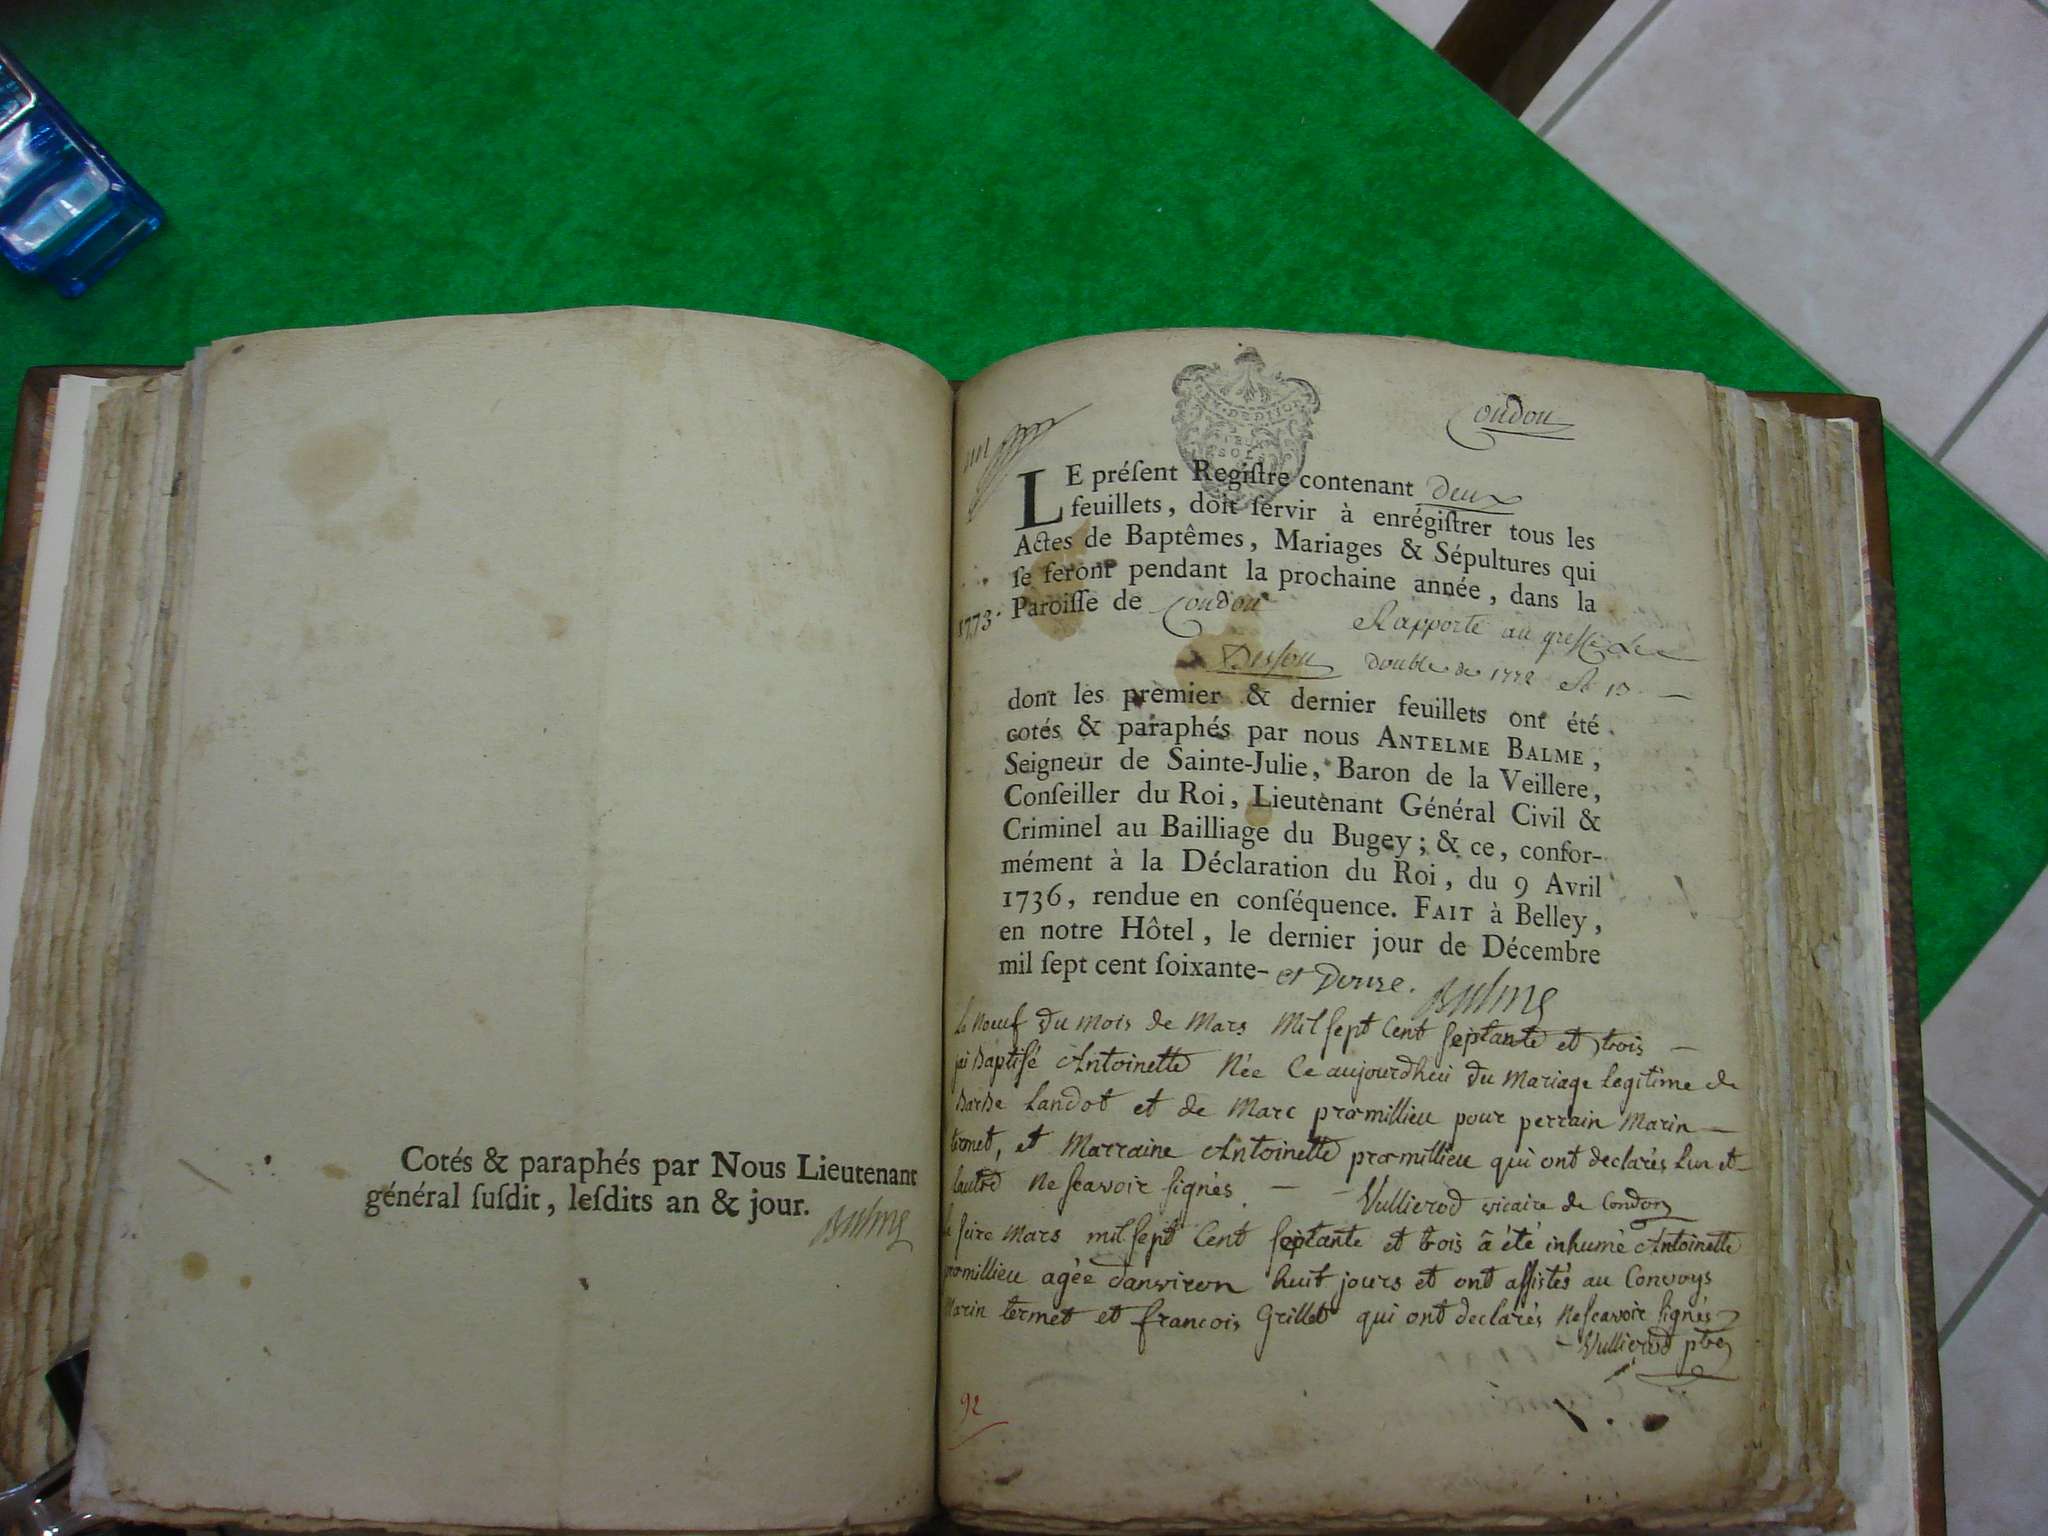 Cotés & paraphés par Nous Lieutenant
général ſuſdit, leſdits an & jour.
Balme
Condon
LE préſent Regiſtre contenant deux
feuillets, doit ſervir à enrégiſtrer tous les
Actes de Baptêmes, Mariages & Sépultures qui
ſe feront pendant la prochaine année, dans la
1773. Paroiſſe de Condon
Rapporté au greffe le
double de 1772
dont les premier & dernier feuillets ont été
cotés & paraphés par nous ANTELME BALME,
Seigneur de Sainte-Julie, Baron de la Veillere,
Conſeiller du Roi, Lieutenant Général Civil &
Criminel au Bailliage du Bugey; & ce, confor-
mément à la Déclaration du Roi, du 9 Avril
1736, rendue en conſéquence. FAIT à Belley,
en notre Hôtel, le dernier jour de Décembre
mil ſept cent ſoixante- et Douze. Balme
Le Noeuf du mois de Mars Mil ſept Cent ſeptante et trois
jai Baptiſé Antoinette Née Ce aujourdhui du Mariage legitime de
Barbe Landot et de Marc promillieu pour perrain Marin
termet, et Marraine Antoinette promillieu qui ont declarés lun et
lautre Ne ſcavoir ſignés Vullierod vicaire de Condon
le ſeize Mars mil ſept Cent ſeptante et trois â été inhumé Antoinette
promillieu agée danviron huit jours et ont aſſistés au Convoys
Marin termet et francois Grillet qui ont declarés Ne ſcavoir ſignés
Vullierod ptre
92